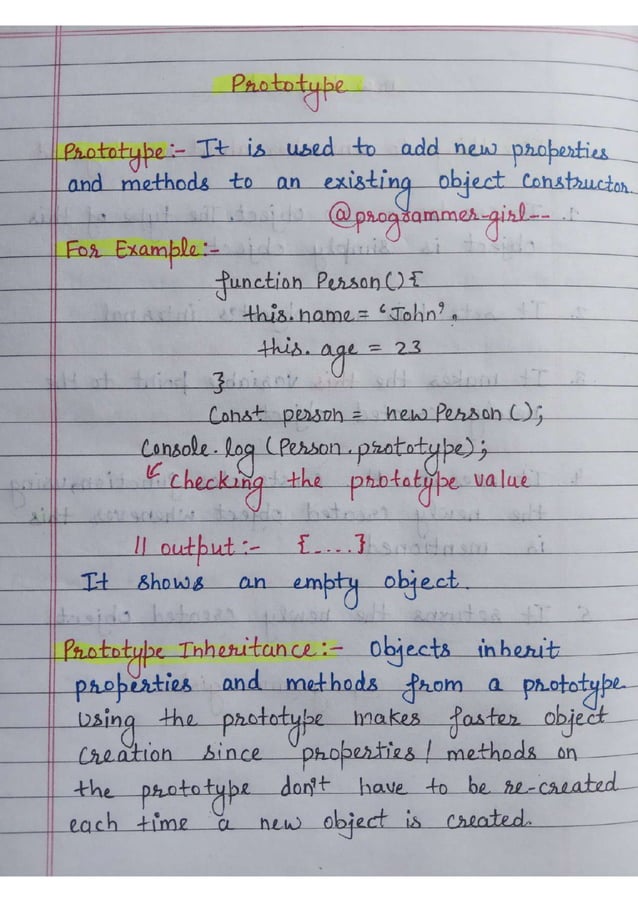 Prototype
Prototype :- It is used to add new properties
and methods to an existing object constructor.
@programmer-girl--
For Example :-
function Person() {
this.name = 'John',
this. age = 23
}
Const person = new Person ();
Console.log (Person.prototype);
↙ Checking the prototype value
// output :- {-...}
It shows an empty object.
Prototype Inheritance :- Objects inherit
properties and methods from a prototype.
Using the prototype makes faster object
Creation since properties / methods on
the prototype don't have to be re-created
each time a new object is created.